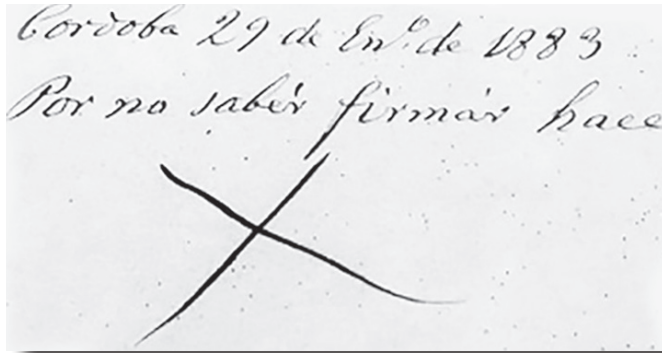 Cordoba 29 de En.º de 1883
Por no sabér firmár hace
X